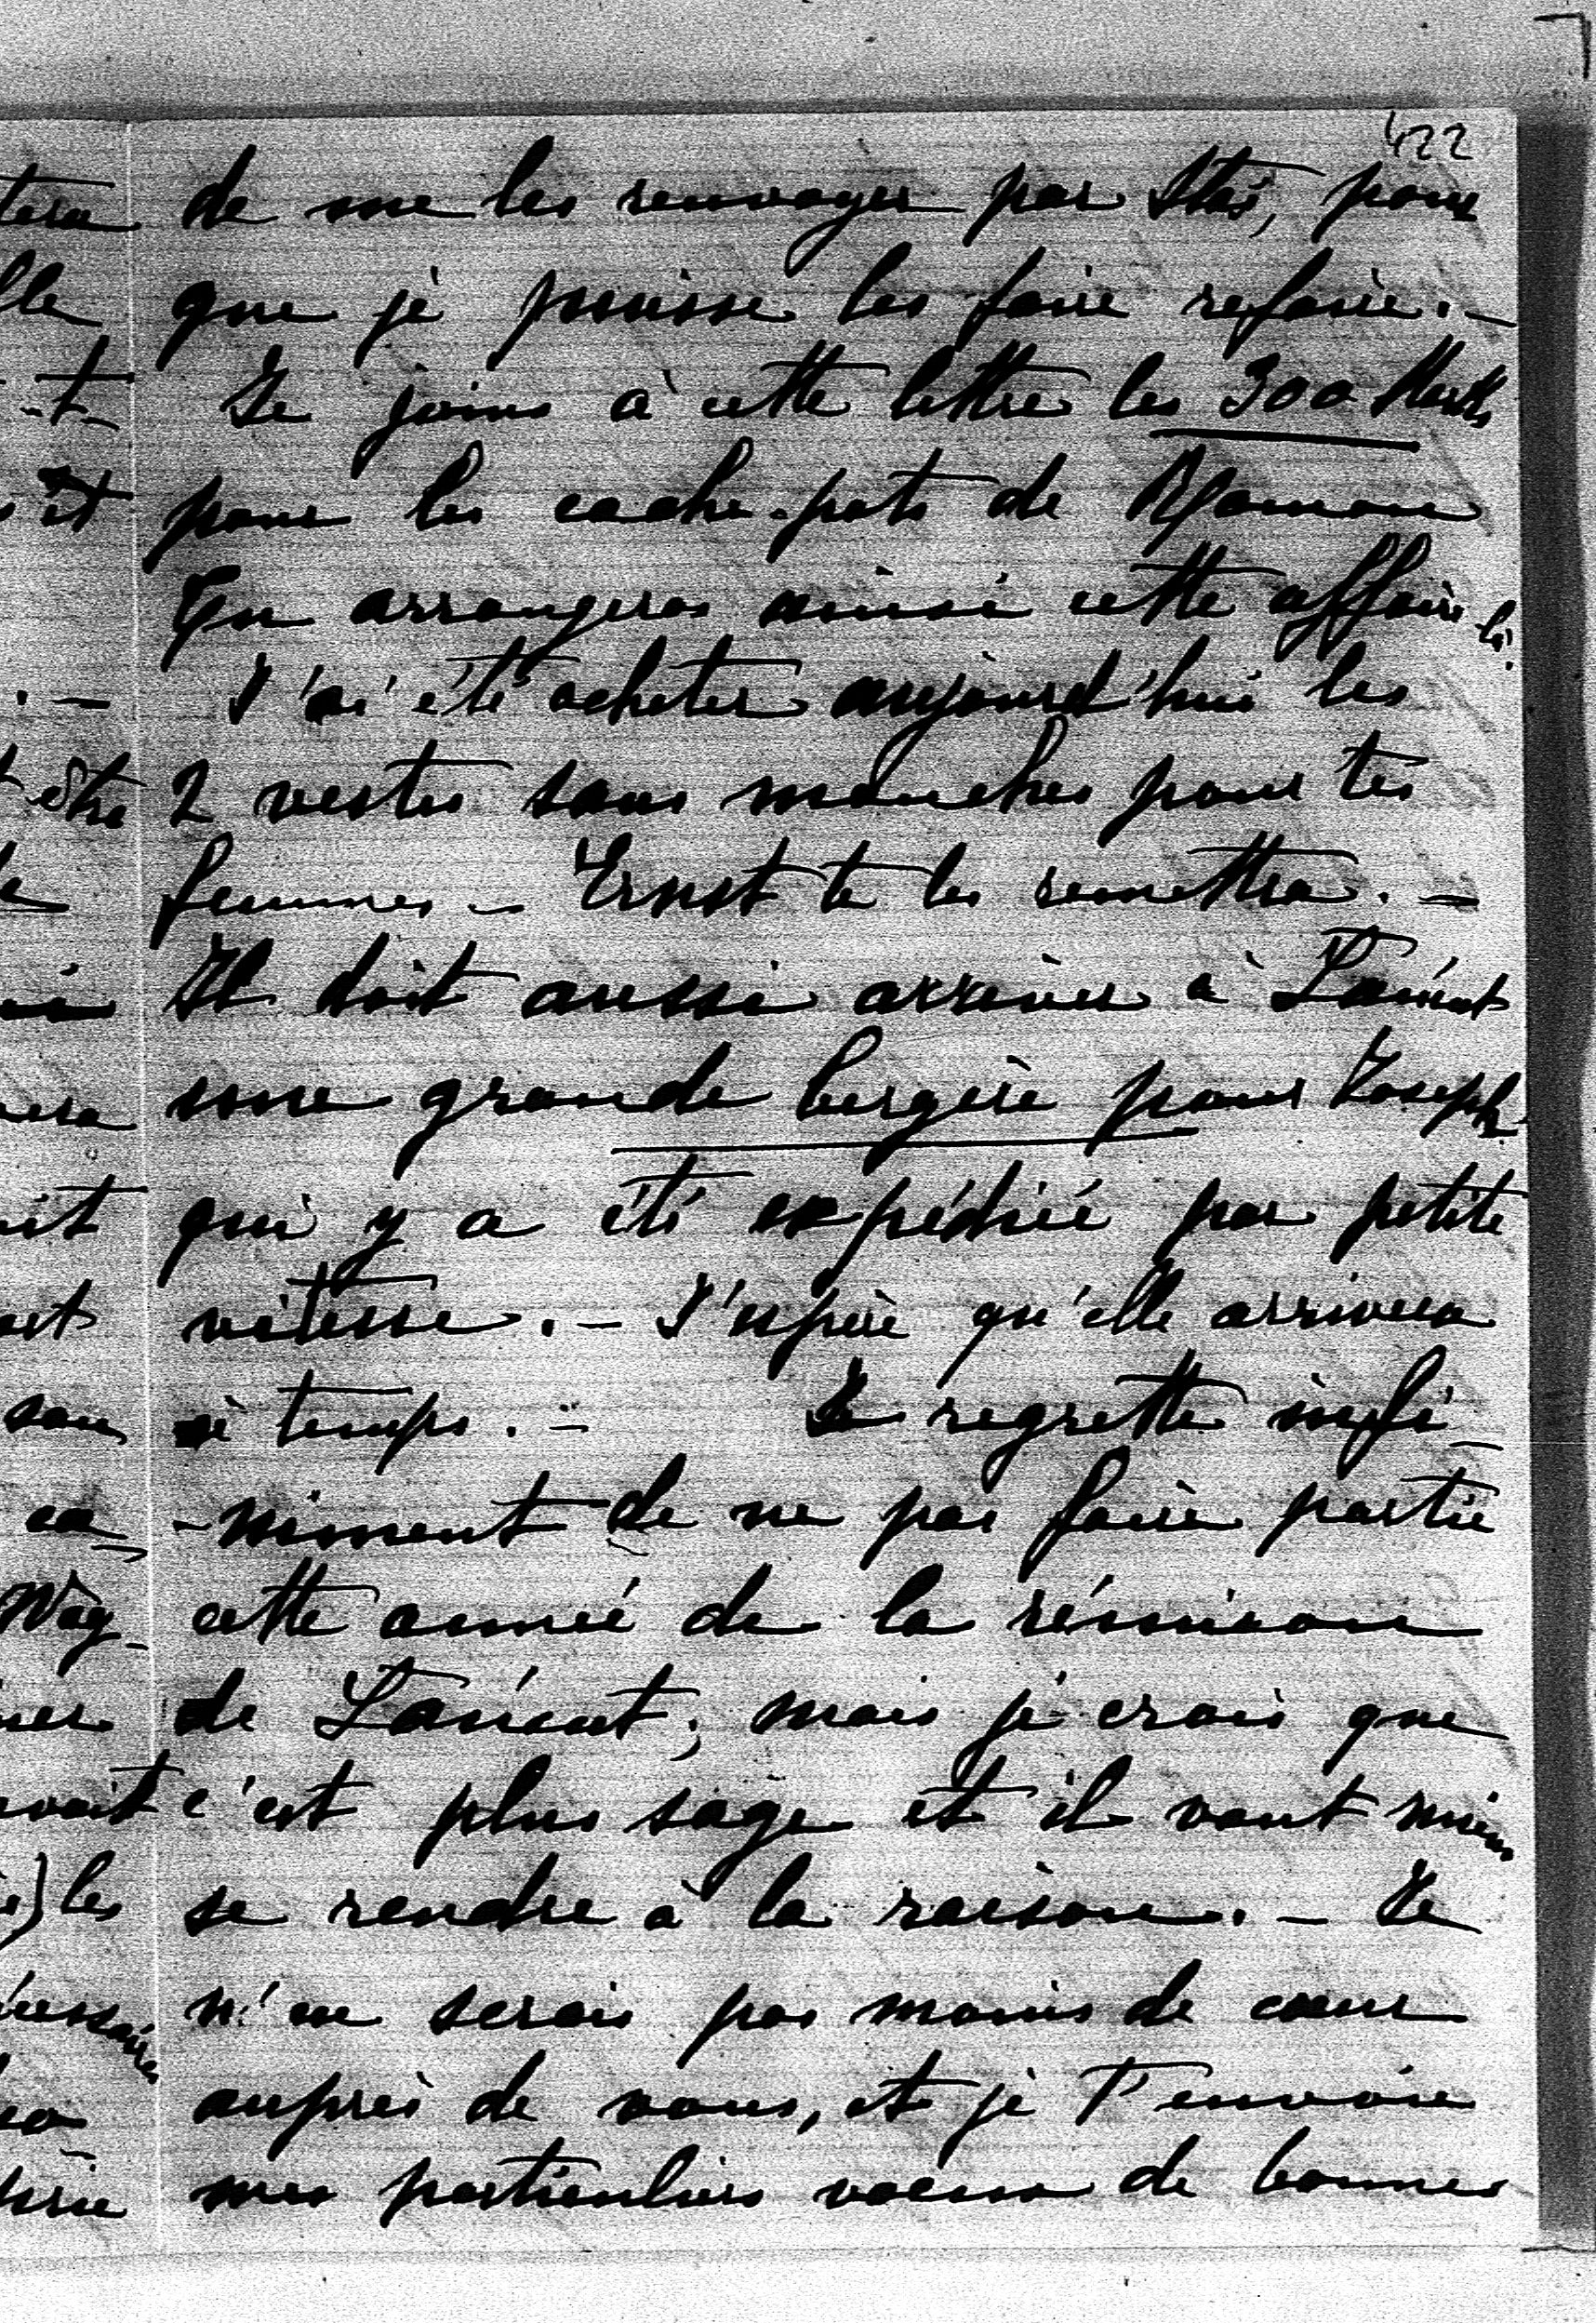 422
de me les renvoyer par Stas, pour
que je puisse les faire refaire. –
Je joins à cette lettre les 300 Marks
pour les cache-pots de Maman
Tu arrangeras ainsi cette affaire-là.
J'ai été acheter aujourd'hui les
2 vestes sans manches pour tes
femmes – Ernst te les remettra. –
Il doit aussi arriver à Łańcut
une grande bergère pour Joseph
qui y a été expédiée par petite
vitesse. – J'espère qu'elle arrivera
à temps. – Je regrette infi-
-niment de ne pas faire partie
cette année de la réunion
de Łańcut, mais je crois que
c'est plus sage et il vaut mieux
se rendre à la raison. – Je
n'en serais pas moins de cœur
auprès de vous, et je T'envoie
mes particuliers vœux de bonne